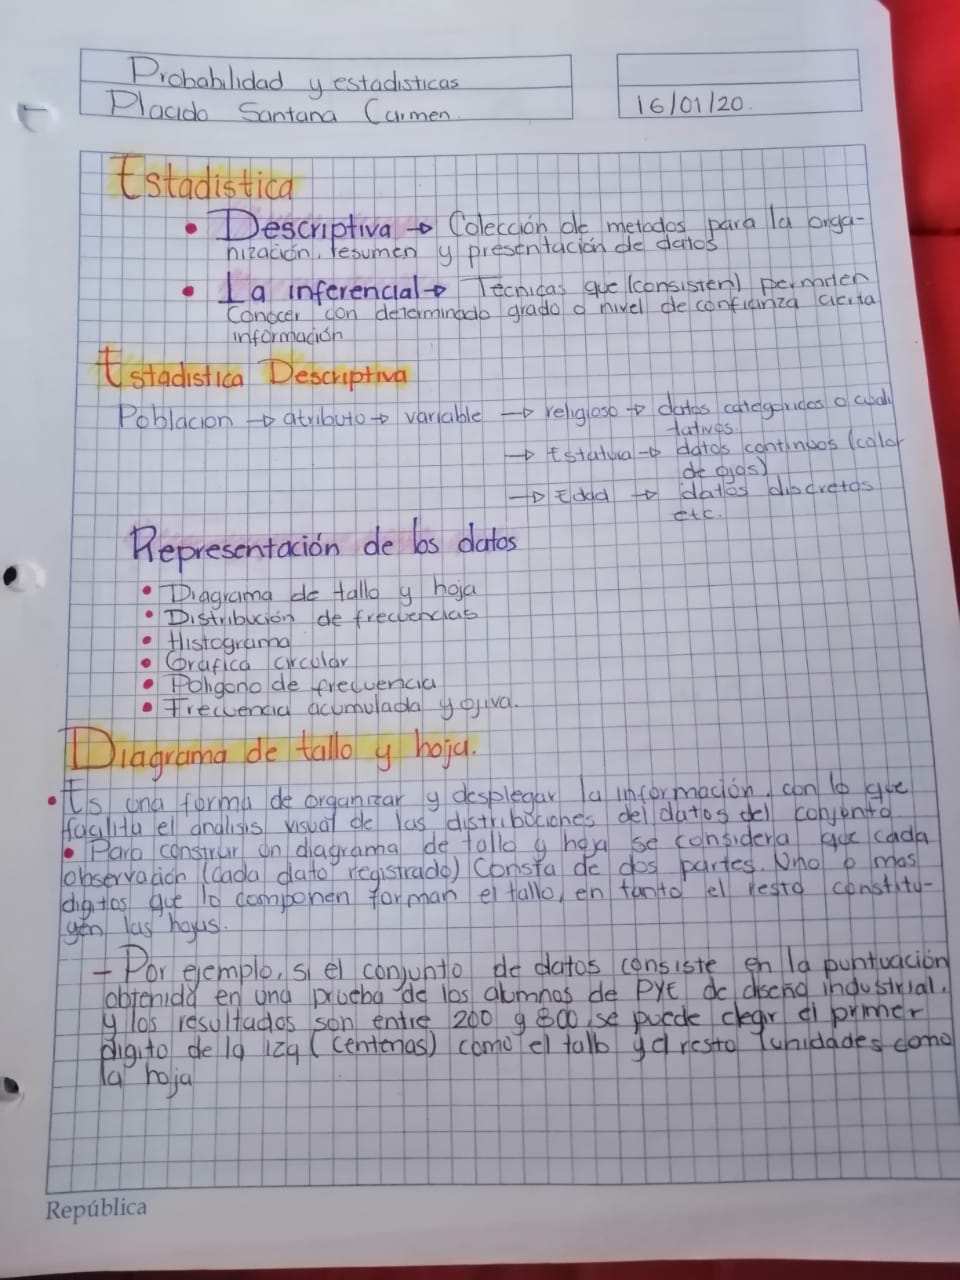 Probabilidad y estadisticas
Placido Santana Carmen.
16/01/20.
Estadistica
• Descriptiva → Colección de metodos para la orga-
nización, resumen y presentación de datos
• La inferencial → Técnicas que (consisten) permiten
Conocer con determinado grado o nivel de confianza cierta
información
Estadistica Descriptiva
Poblacion → atributo → variable → religioso → datos categoricos o cuali
tativos
→ Estatura → datos continuos (color
de ojos)
→ Edad → datos discretos
etc.
Representación de los datos
• Diagrama de tallo y hoja
• Distribución de frecuencias
• Histograma
• Grafica circular
• Poligono de frecuencia
• Frecuencia acumulada y ojiva.
Diagrama de tallo y hoja.
• Es una forma de organizar y desplegar la información, con lo que
facilita el analisis visual de las distribuciones del datos del conjunto
• Para construir un diagrama de tallo y hoja se considera que cada
observación (cada dato registrado) Consta de dos partes. Uno o mas
digitos que lo componen forman el tallo, en tanto el resto constitu-
yen las hojas.
- Por ejemplo, si el conjunto de datos consiste en la puntuación
obtenida en una prueba de los alumnos de PYE de diseño industrial,
y los resultados son entre 200 y 800, se puede elegir el primer
digito de la izq (centenas) como el tallo y el resto (unidades como
la hoja
República